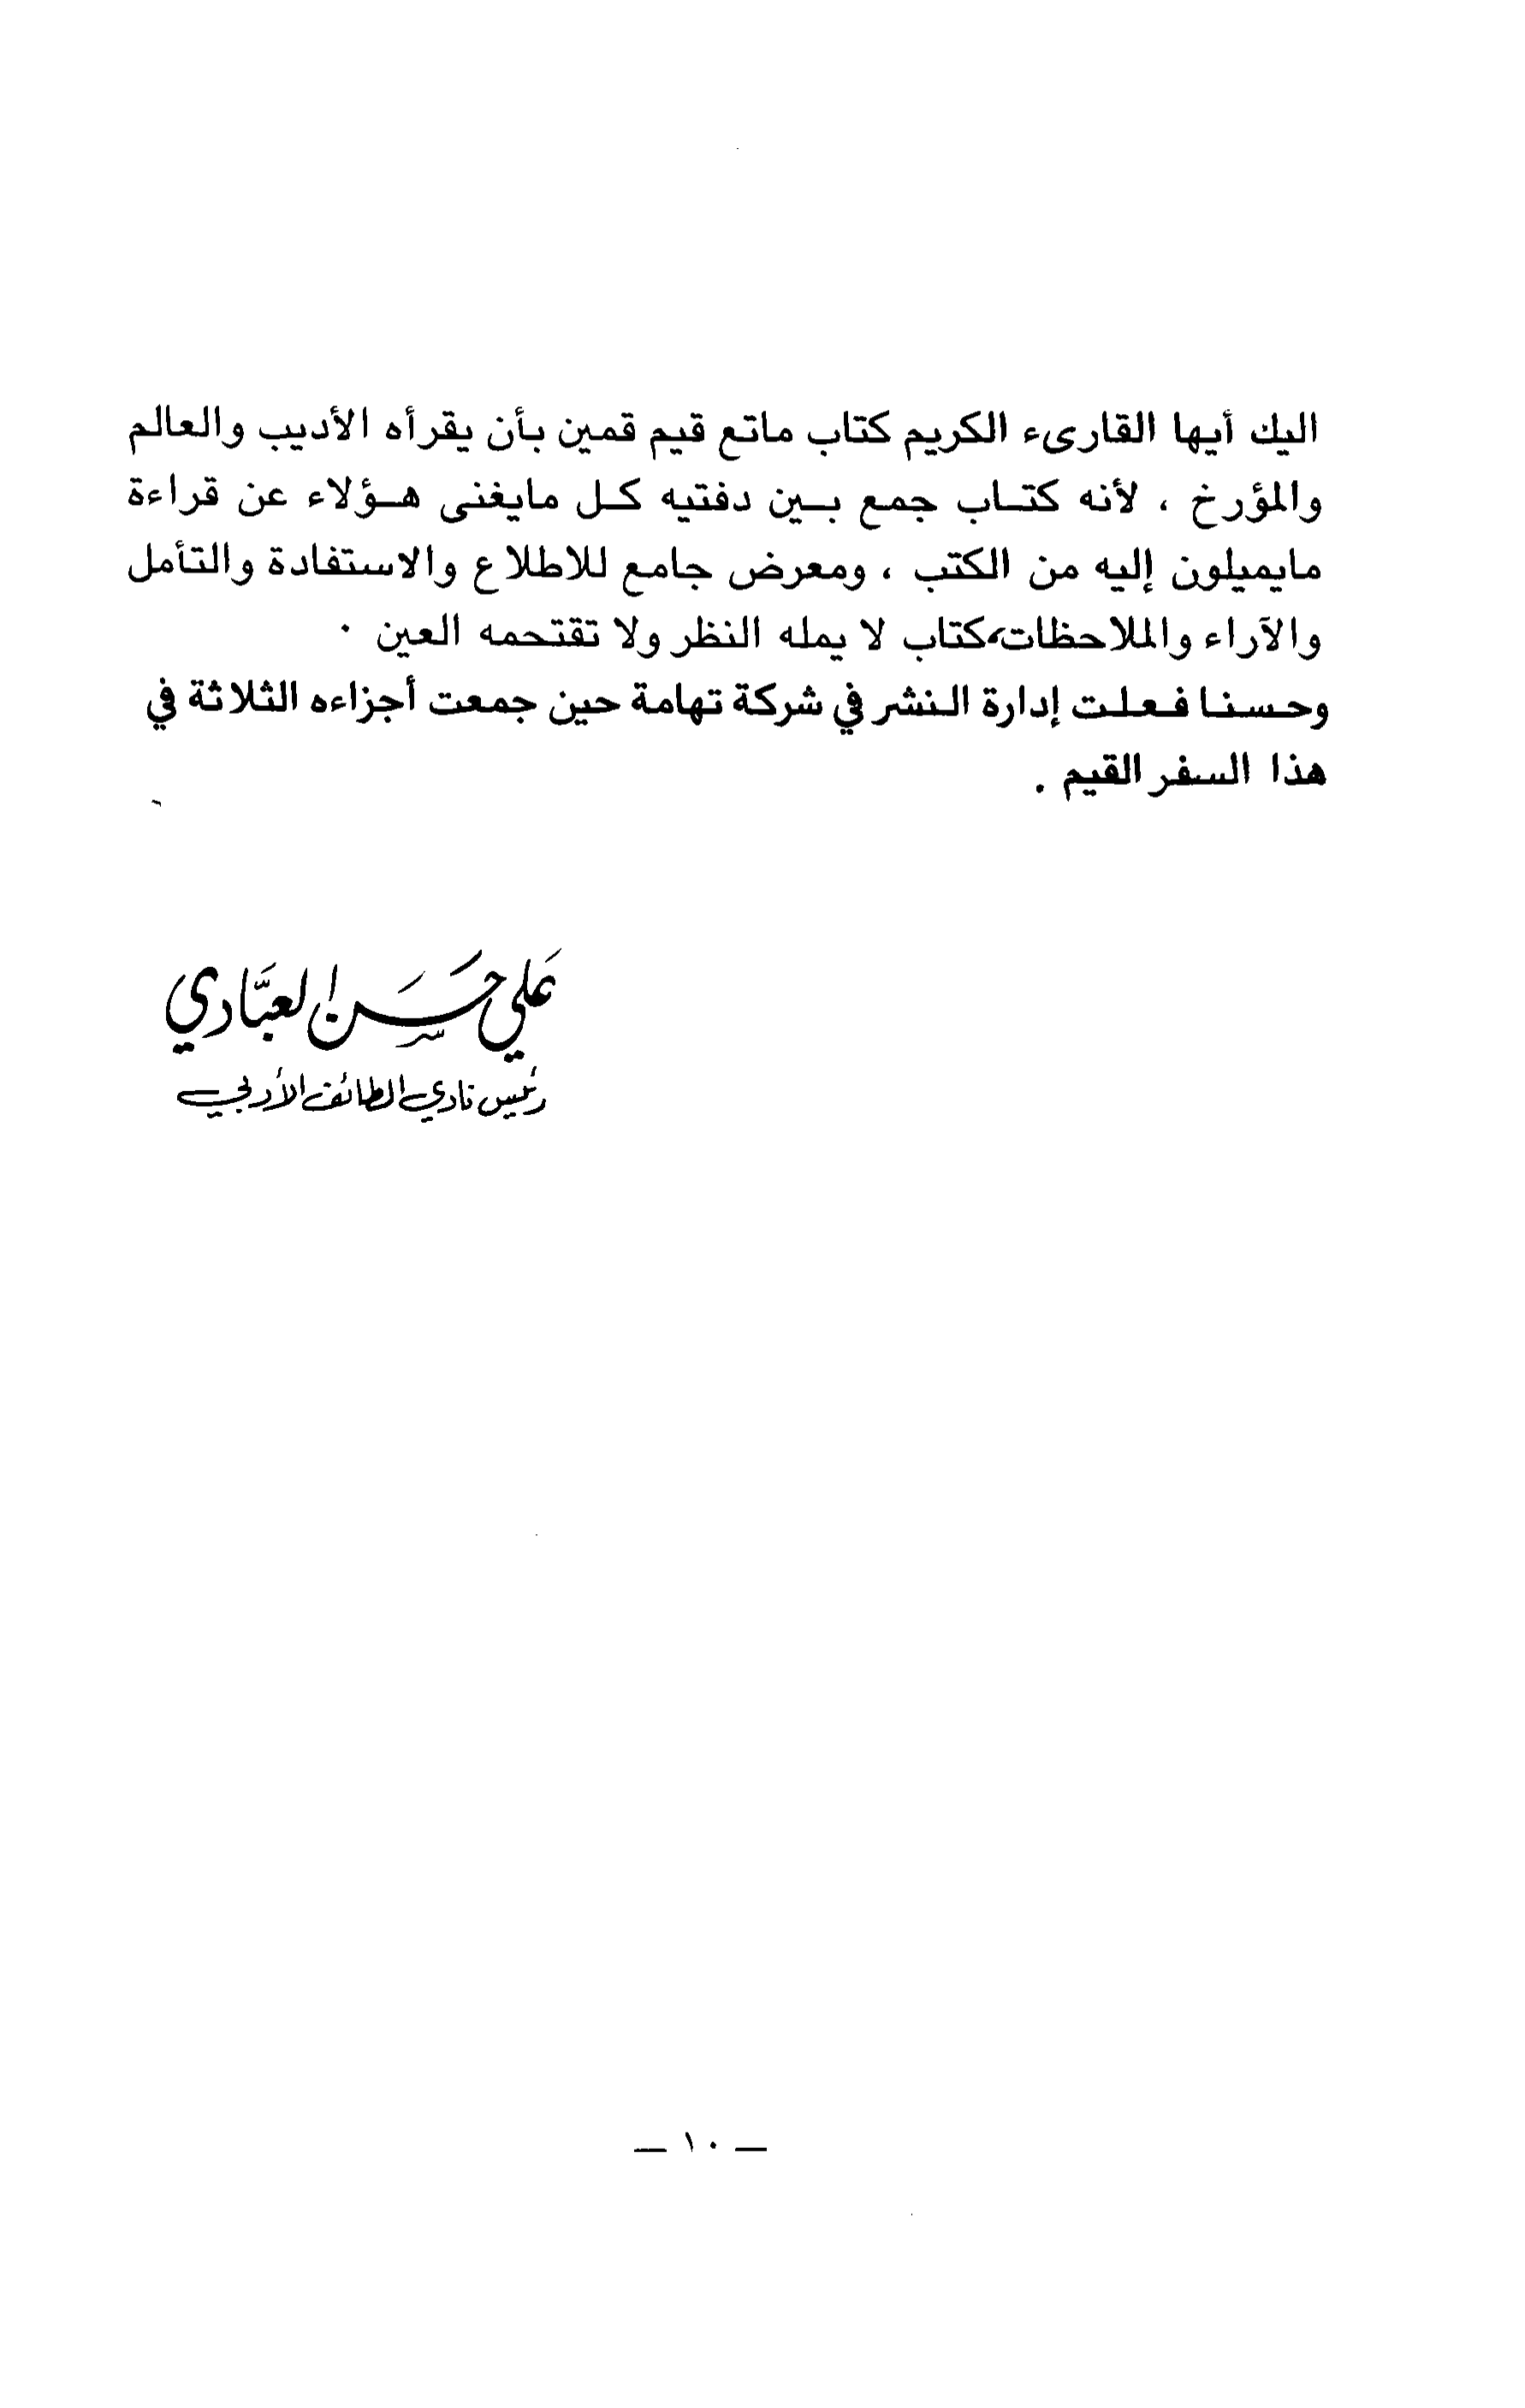 اليك أيها القارىء الكريم كتاب ماتع قيم قمين بأن يقرأه الأديب والعالم
والمؤرخ ، لأنه كتاب جمع بين دفتيه كل مايغنى هؤلاء عن قراءة
مايميلون إليه من الكتب ، ومعرض جامع للاطلاع والاستفادة والتأمل
والآراء والملاحظات،كتاب لا يمله النظر ولا تقتحمه العين .
وحسنا فعلت إدارة النشر في شركة تهامة حين جمعت أجزاءه الثلاثة في
هذا السفر القيم .
عَلي حَسَن العبَّادي
رئيس نادي الطائف الأدبي
— ١٠ —